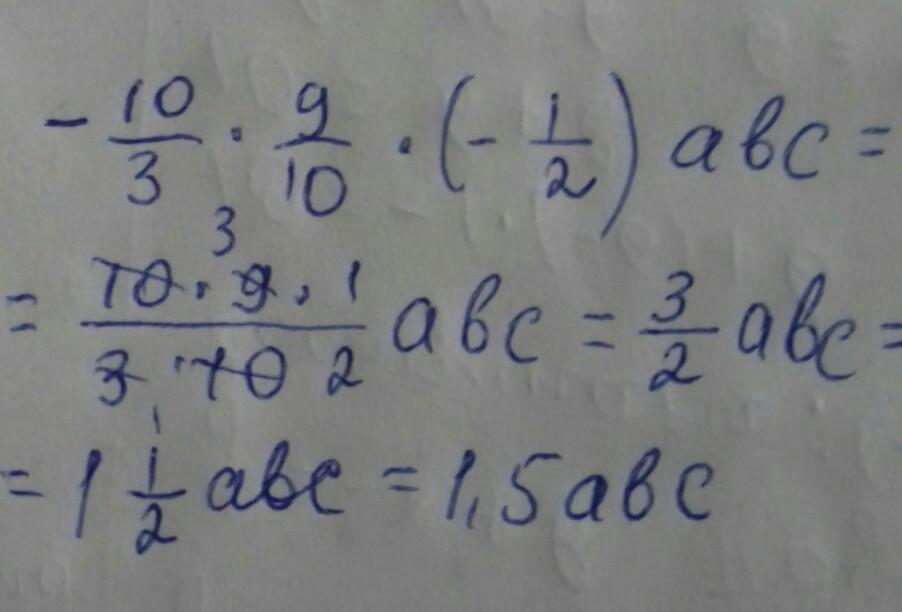 - 10/3 · 9/10 · (- 1/2) abc =
3
= 10 · 9 · 1 / 3 · 10 2 abc = 3/2 abc =
1
= 1 1/2 abc = 1,5 abc